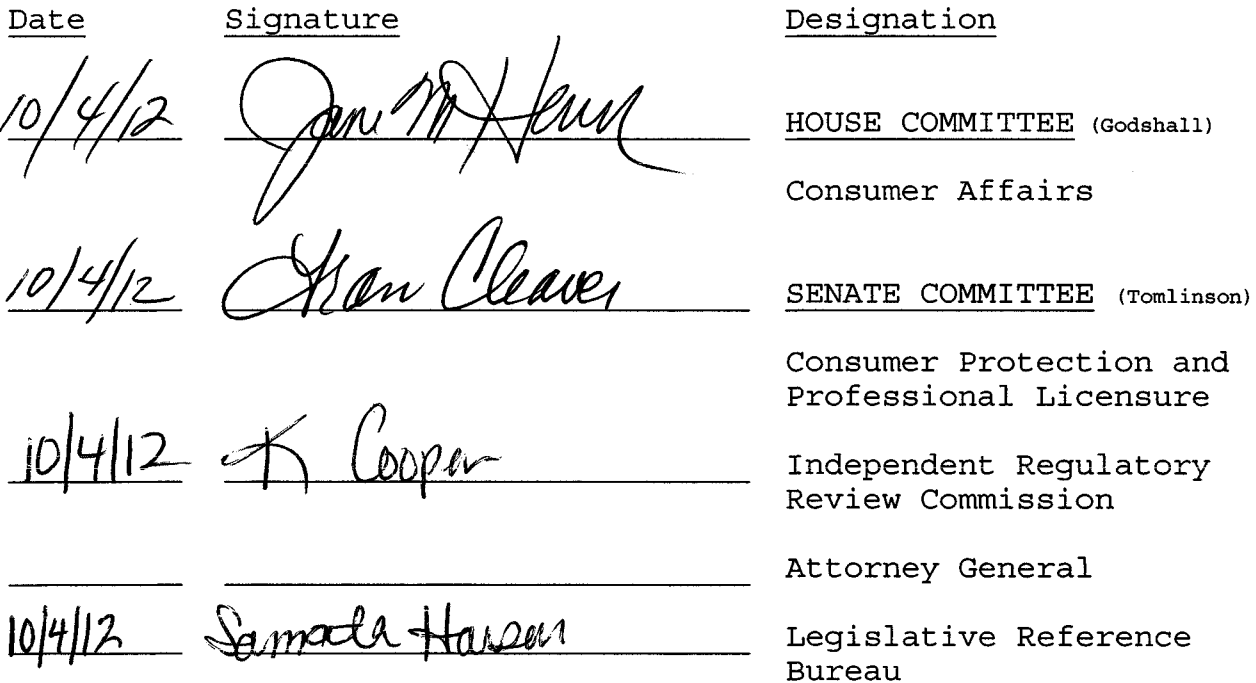 Date Signature Designation
10/4/12 Jane M HOUSE COMMITTEE (Godshall)
Consumer Affairs
10/4/12 Fran Cleaver SENATE COMMITTEE (Tomlinson)
Consumer Protection and
Professional Licensure
10/4/12 K Cooper Independent Regulatory
Review Commission
Attorney General
10/4/12 Legislative Reference
Bureau